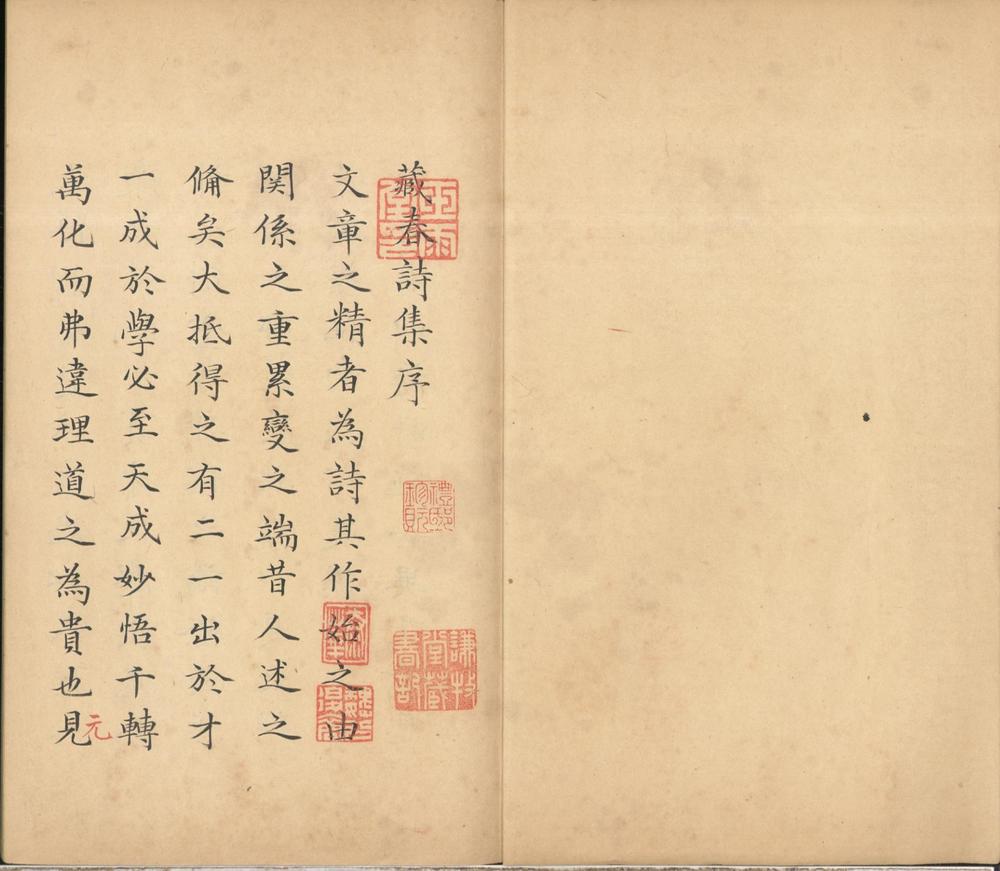 藏春詩集序
文章之精者為詩其作始之由
関係之重累變之端昔人述之
俻矣大抵得之有二一出於才
一成於學必至天成妙悟千轉
萬化而弗違理道之為貴也見
元
謙牧堂藏書記